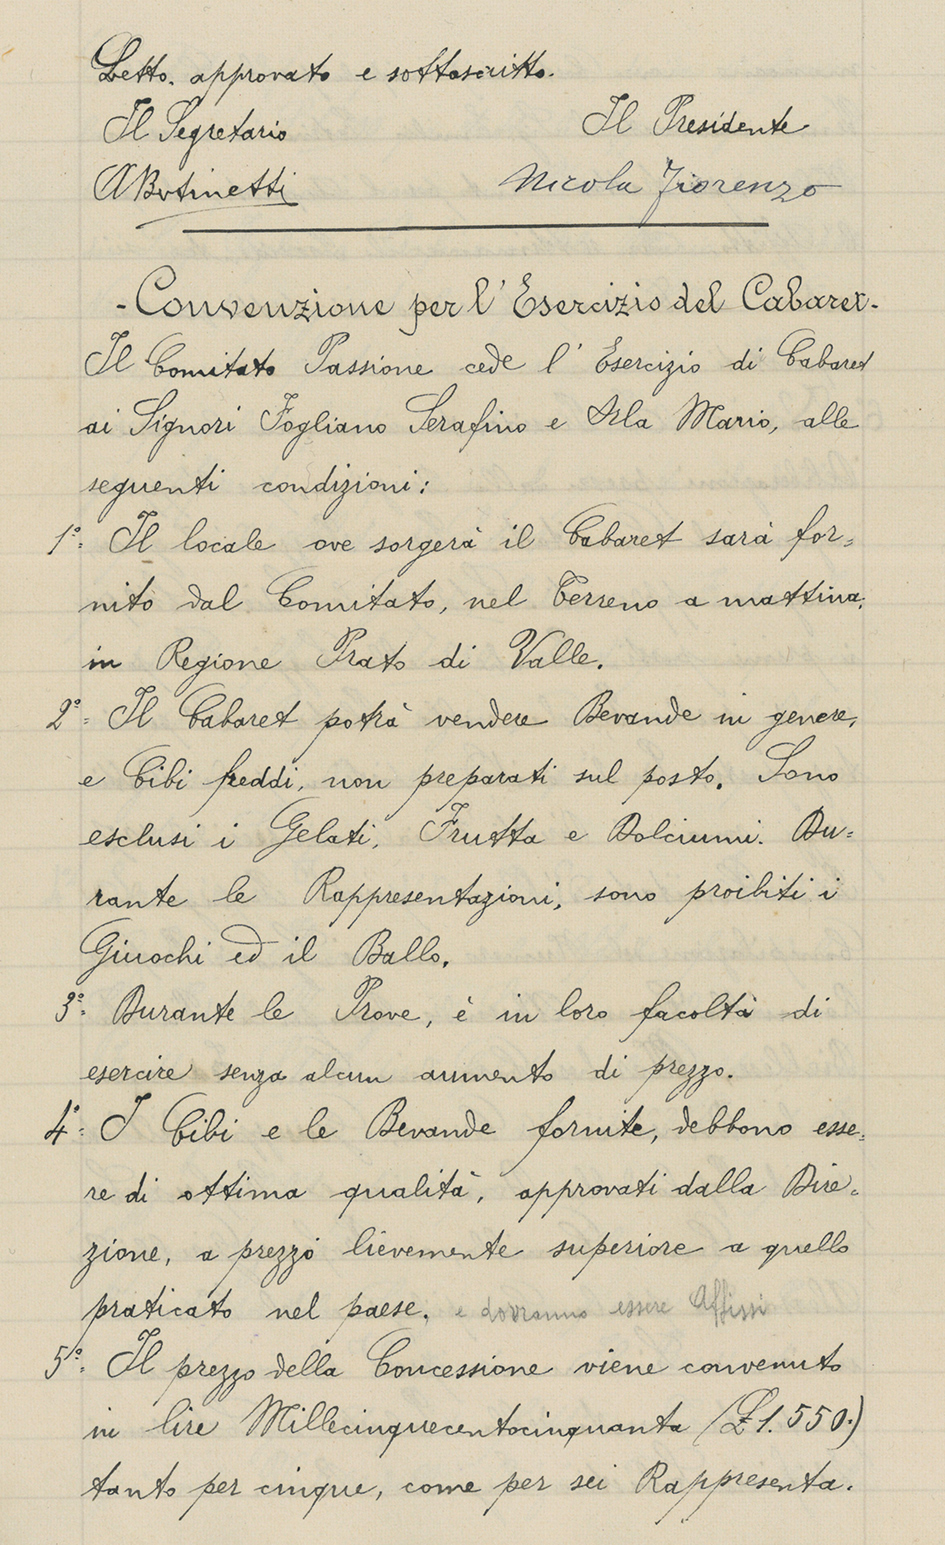 Letto. approvato e sottoscritto.
Il Segretario Il Presidente
Nicola Fiorenzo
- Convenzione per l'Esercizio del Cabaret -
Il Comitato Passione cede l'Esercizio di Cabaret
ai Signori Fogliano Serafino e Isla Mario, alle
seguenti condizioni:
1º= Il locale ove sorgerà il Cabaret sarà for=
nito dal Comitato, nel Terreno a mattina,
in Regione Prato di Valle.
2º= Il Cabaret potrà vendere Bevande in genere,
e Cibi freddi, non preparati sul posto. Sono
esclusi i Gelati, Frutta e Dolciumi. Du=
rante le Rappresentazioni, sono proibiti i
Giuochi ed il Ballo.
3º= Durante le Prove, è in loro facoltà di
esercire senza alcun aumento di prezzo.
4º= I Cibi e le Bevande fornite, debbono esse=
re di ottima qualità, approvati dalla Dire=
zione, a prezzo lievemente superiore a quello
praticato nel paese. e dovranno essere Affissi
5º= Il prezzo della Concessione viene convenuto
in lire Millecinquecentocinquanta (£ 1.550.)
tanto per cinque, come per sei Rappresenta.